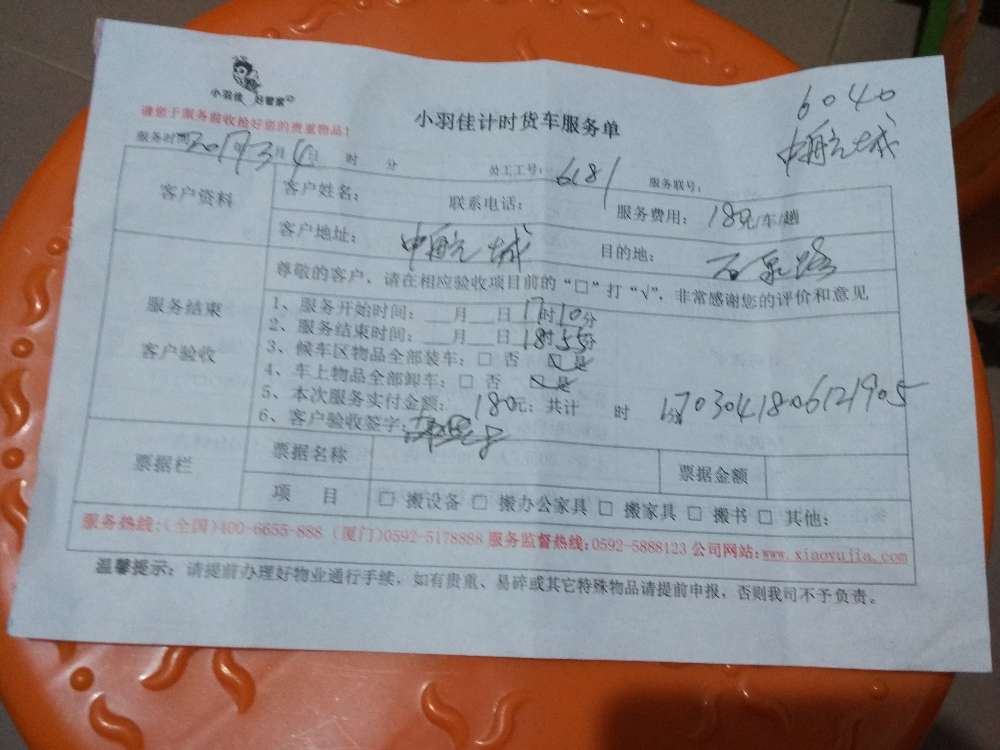 小羽佳 好管家
请您于服务前收检好您的贵重物品！
小羽佳计时货车服务单
6040
中航城
服务时间 2017年3月4日 时 分 员工工号：6181 服务联号：
客户资料 客户姓名： 联系电话： 服务费用：180元/车/趟
客户地址：中航城 目的地：石泉路
服务结束
客户验收
尊敬的客户，请在相应验收项目前的“□”打“√”，非常感谢您的评价和意见
1、服务开始时间：__月__日17时10分
2、服务结束时间：__月__日18时55分
3、候车区物品全部装车：□ 否 ☑ 是
4、车上物品全部卸车：□ 否 ☑ 是
5、本次服务实付金额：180元；共计 时 分
1703041806121905
6、客户验收签字：
票据栏 票据名称 票据金额
项 目 □ 搬设备 □ 搬办公家具 □ 搬家具 □ 搬书 □ 其他：
服务热线：(全国)400-6655-888 (厦门)0592-5178888 服务监督热线：0592-5888123 公司网站：www.xiaoyujia.com
温馨提示：请提前办理好物业通行手续，如有贵重、易碎或其它特殊物品请提前申报，否则我司不予负责。